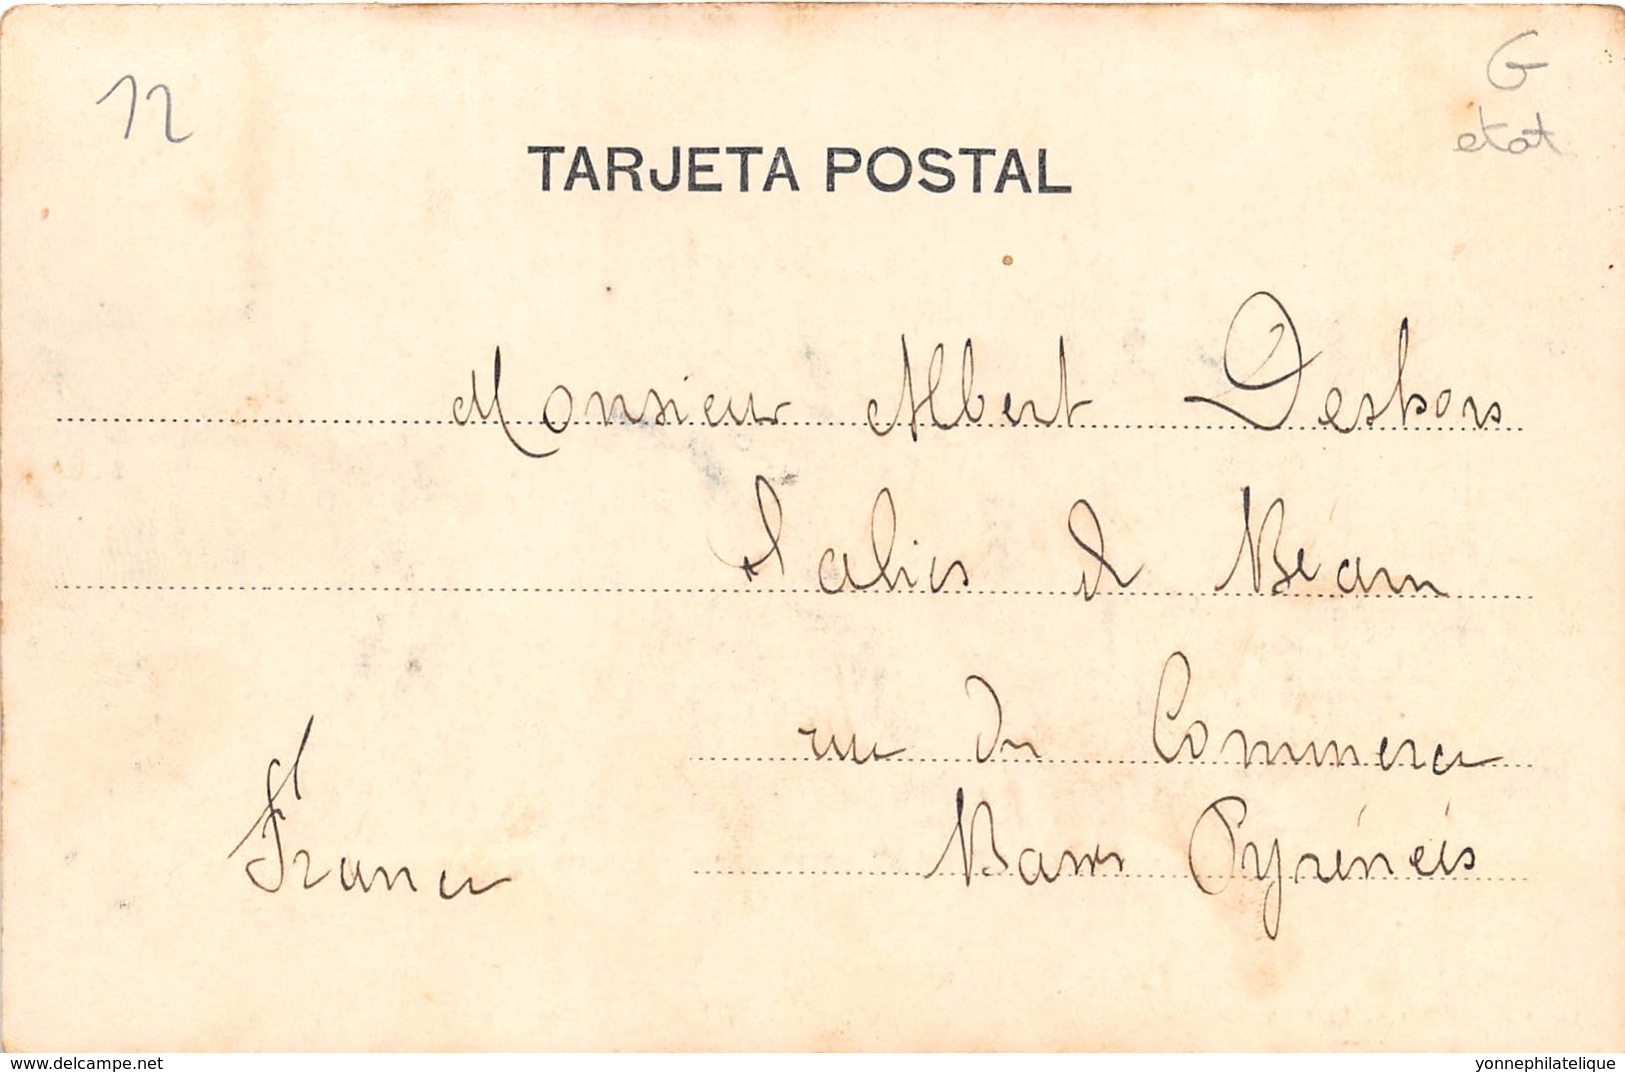 12
G
etat
TARJETA POSTAL
Monsieur Albert Desbons
Salies de Béarn
rue du Commerce
Basses Pyrénées
France
delcampe.net
yonnephilatelique